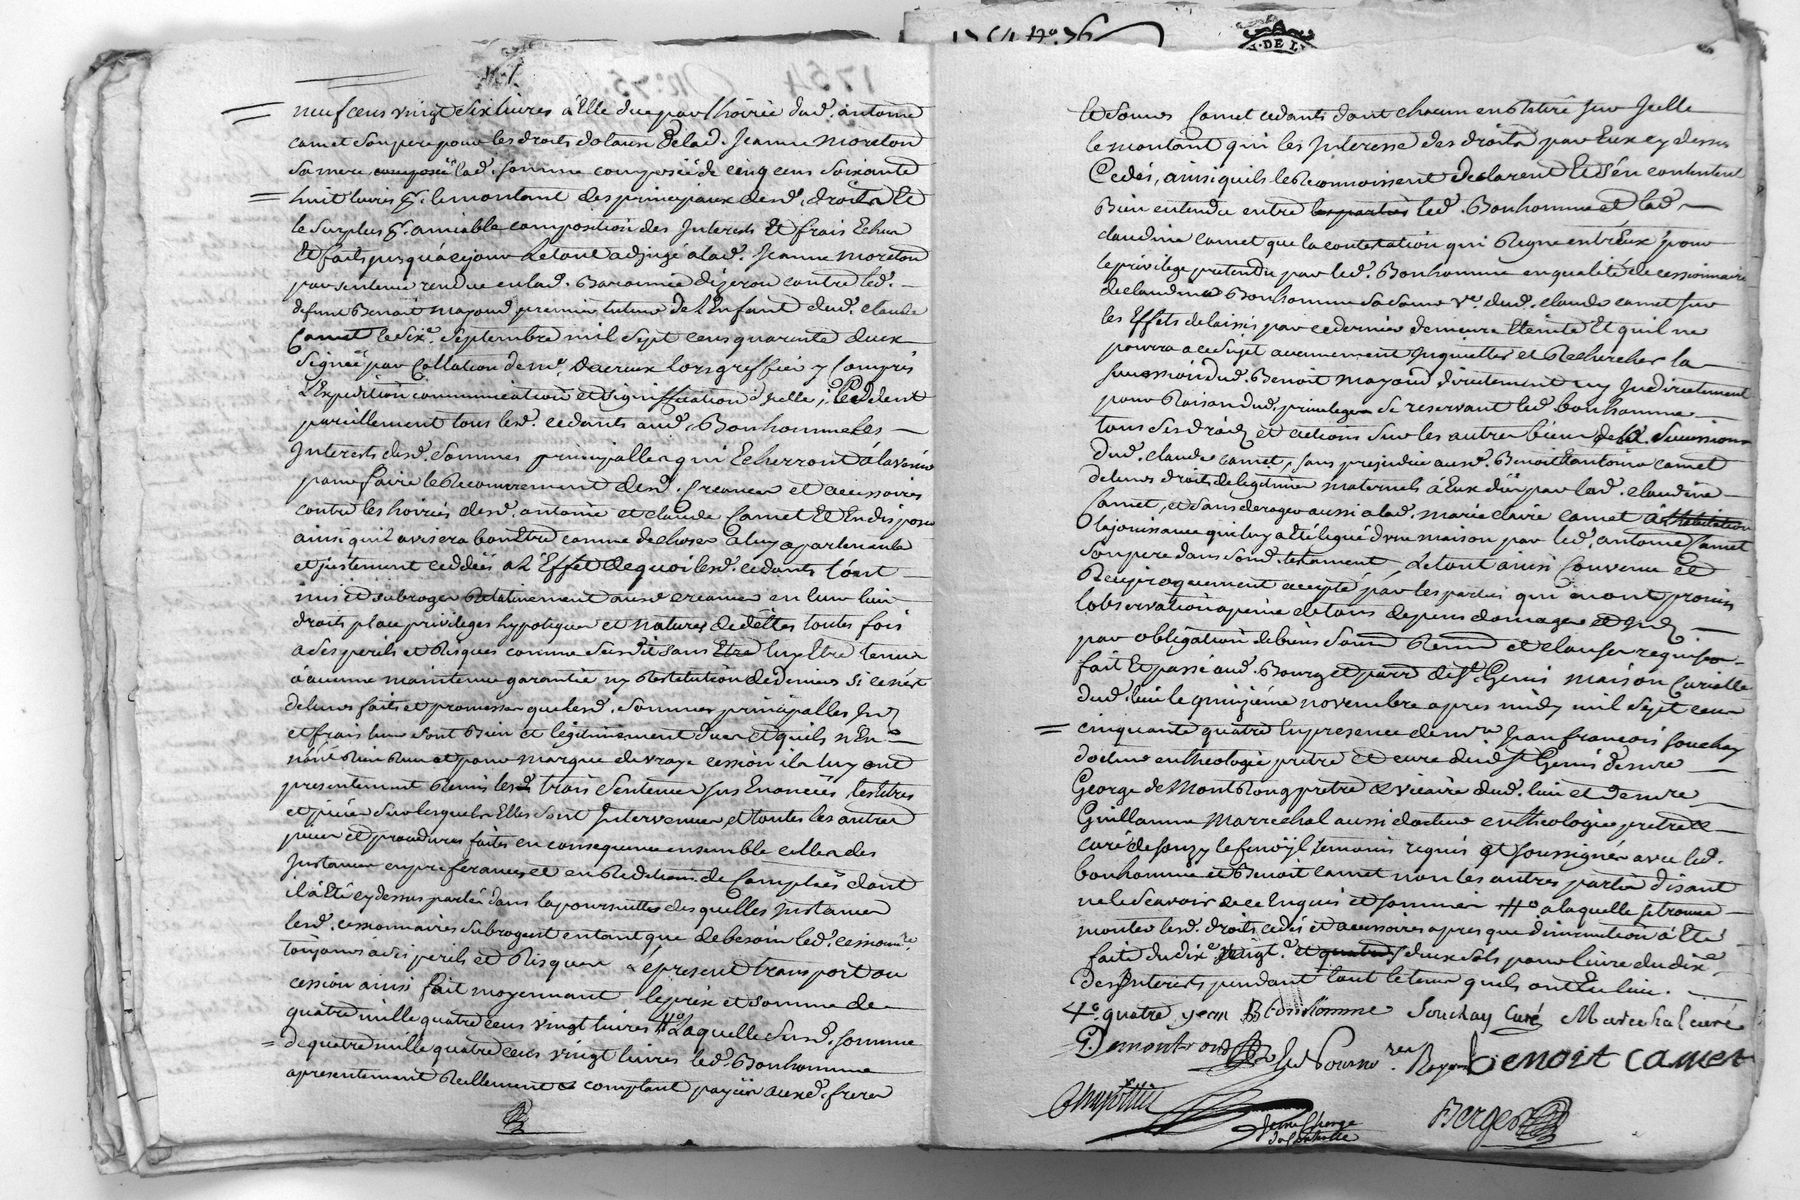 neuf cens vingt six livres à Elle due par l'hoirie dud. antoine
camet son pere pour les droits dotaux de lad. Jeanne moreton
sa mere, composée lad. somme composée de cinq cens soixante
huit livres p. le montant des principaux desd. droits Et
le surplus p. amiable composition des Interets Et frais Echeu
Et faits jusqu'à ce jour Le tout adjugé à lad. Jeanne moreton
par sentence rendue en lad. Baronnie contre led.
defunt Benoit mayoud premier tuteur de l'Enfant dud. claude
Camet le six. septembre mil sept cens quarante deux
signée par Collation de me. lors greffier y Compris
l'Expedition communication et signiffication d'jcelle, Cedent
pareillement tous lesd. cedants aud. Bonhomme les
Interets desd. sommes principalles qui Echerront à l'avenir
pour faire le Recouvrement desd. creances et accessoires
contre les hoiries desd. antoine et claude Camet Et En disposer
ainsi qu'il avisera bon Etre comme de choses à luy apartenants
et justement ceddées a l'Effet de quoi lesd. cedants l'ont
mis et subrogé Relativement auxd. creances en leur lieu
droits place privileges hypoteques et natures de dettes toutes fois
a ses perils et Risques comme susdit sans Etre luy Etre tenus
à aucune maintenue garantie ny Restitution de deniers si ce n'est
de leurs faits et promesses que lesd. sommes principalles
et frais leur sont Bien et legitimement dues et quils n'En
ont Rien Reçu et pour marque de vraye cession ils luy ont
presentement Remis lesd. trois sentences sus Enoncées, les titres
et pieces sur lesquels Elles sont Intervenues et toutes les autres
pieces et procedures faites en consequence ensemble celles des
Instances en preferances et en Redition de Comptes dont
il à Eté cy dessus parlé dans la poursuitte des quelles Instances
lesd. cessionnaires subrogent entant que de besoin led. cessionnre.
toujours à ses perils et Risques Le present transport ou
cession ainsi fait moyennant le prix et somme de
quatre mille quatre cens vingt livres # Laquelle susd. somme
de quatre mille quatre cens vingt livres led. Bonhomme
a presentement Reellement et comptant payée auxd. freres
le sonnes Camet cedants dont chacun en Retiré sur Jcelle
le montant qui les Interesse des droits par Eux cy dessus
Cedés, ainsi quils le Reconnoissent declarent Et s'en contentent
Bien entendu entre les parties led. Bonhomme et lad.
claudine camet que la contestation qui Regne entr'Eux pour
le privilege pretendu par led. Bonhomme en qualité de cessionnaire
de claudine Bonhomme sa soeur ve. dud. claude camet sur
les Effets delaissés par ce dernier demeure Eteinte Et quil ne
pourra a ce sujet aucunement Inquietter et Rechercher la
succession dud. Benoit mayoud directement ny Indirectement
pour Raison dud. privilege se reservant led. bonhomme
tous ses droits et actions sur les autres biens de la succession
dud. claude camet, sans prejudice auxd. Benoit Et antoine camet
de leurs droits de legitime maternels à Eux dûs par lad. claudine
Camet, et sans deroger aussi a lad. marie claire camet à l'habitation
la jouissance qui luy a Eté leguée d'une maison par led. antoine Camet
son pere dans sond. testament, Le tout ainsi Convenu et
Reciproquement accepté par les parties qui en ont promis
l'observation a peine de tous depens domages et
par obligation de biens soum. Renon. et clauses requises
fait Et passé aud. Bourg et parr. de St. Genis maison Curialle
dud. lieu le quinzième novembre apres midy mil sept cens
cinquante quatre En presence de mre. Jean francois souchay
docteur en theologie pretre et curé dud. St. Genis de mre.
George de Mont Rong pretre & vicaire dud. lieu et de mre.
Guillaume Marrechal aussi docteur en theologie pretre &
curé de souzy temoins requis et soussignés avec led.
bonhomme et Benoit camet non les autres parties disant
ne le scavoir de ce Enquis et sommés # a laquelle se trouve
monter lesd. droits cedés et accessoires apres que diminution à Eté
fait du dix. vingt. et quatre deux sols pour livre du dixe.
des Interets pendant tout le tems quils ont Eu lieu.
4e. quatre jean Bonhomme Souchay Curé Marechal curé
G. Demontrond benoit camet
Berger